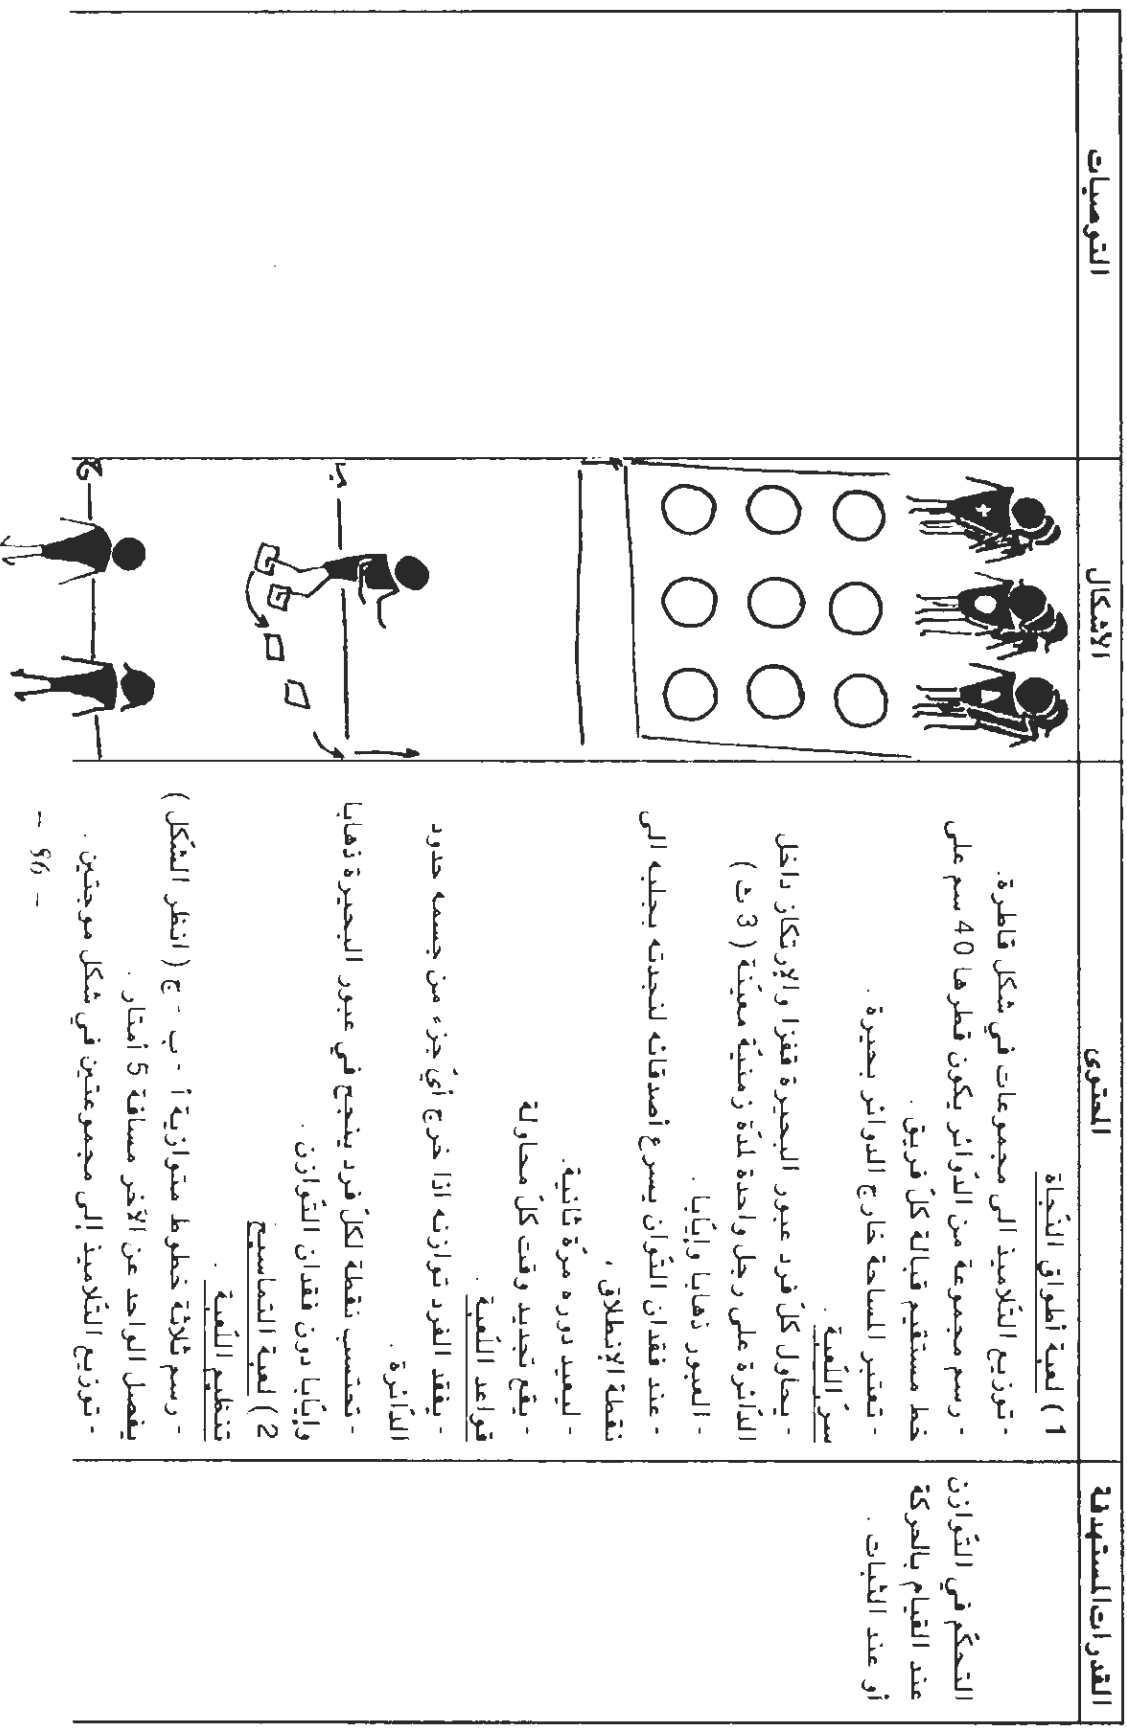 القدرات المستهدفة
المحتوى
الأشكال
التوصيات
التحكّم في التّوازن
عند القيام بالحركة
أو عند الثبات .
1 ) لعبة أطواق النّجاة
- توزيع التّلاميذ الى مجموعات في شكل قاطرة.
- رسم مجموعة من الدّوائر يكون قطرها 40 سم على
خط مستقيم قبالة كلّ فريق .
- تعتبر المساحة خارج الدوائر بحيرة .
سرّ اللّعبة .
- يحاول كلّ فرد عبور البحيرة قفزا والإرتكاز داخل
الدّائرة على رجل واحدة لمدّة زمنيّة معيّنة ( 3 ث )
- العبور ذهابا وإيّابا .
- عند فقدان التّوان يسرع أصدقائه لنجدته بجلبه الى
نقطة الإنطلاق ،
- ليعيد دوره مرّة ثانية .
- يقع تجديد وقت كلّ محاولة
قواعد اللّعبة .
- يفقد الفرد توازنه اذا خرج أيّ جزء من جسمه حدود
الدّائرة .
- تحتسب نقطة لكلّ فرد ينجح في عبور البحيرة ذهابا
وإيّابا دون فقدان التّوازن .
2 ) لعبة التماسيح
تنظيم اللّعبة .
- رسم ثلاثة خطوط متوازية أ - ب - ج ( انظر الشّكل )
يفصل الواحد عن الآخر مسافة 5 أمتار .
- توزيع التّلاميذ إلى مجموعتين في شكل موجتين .
ب
ج
- 96 -